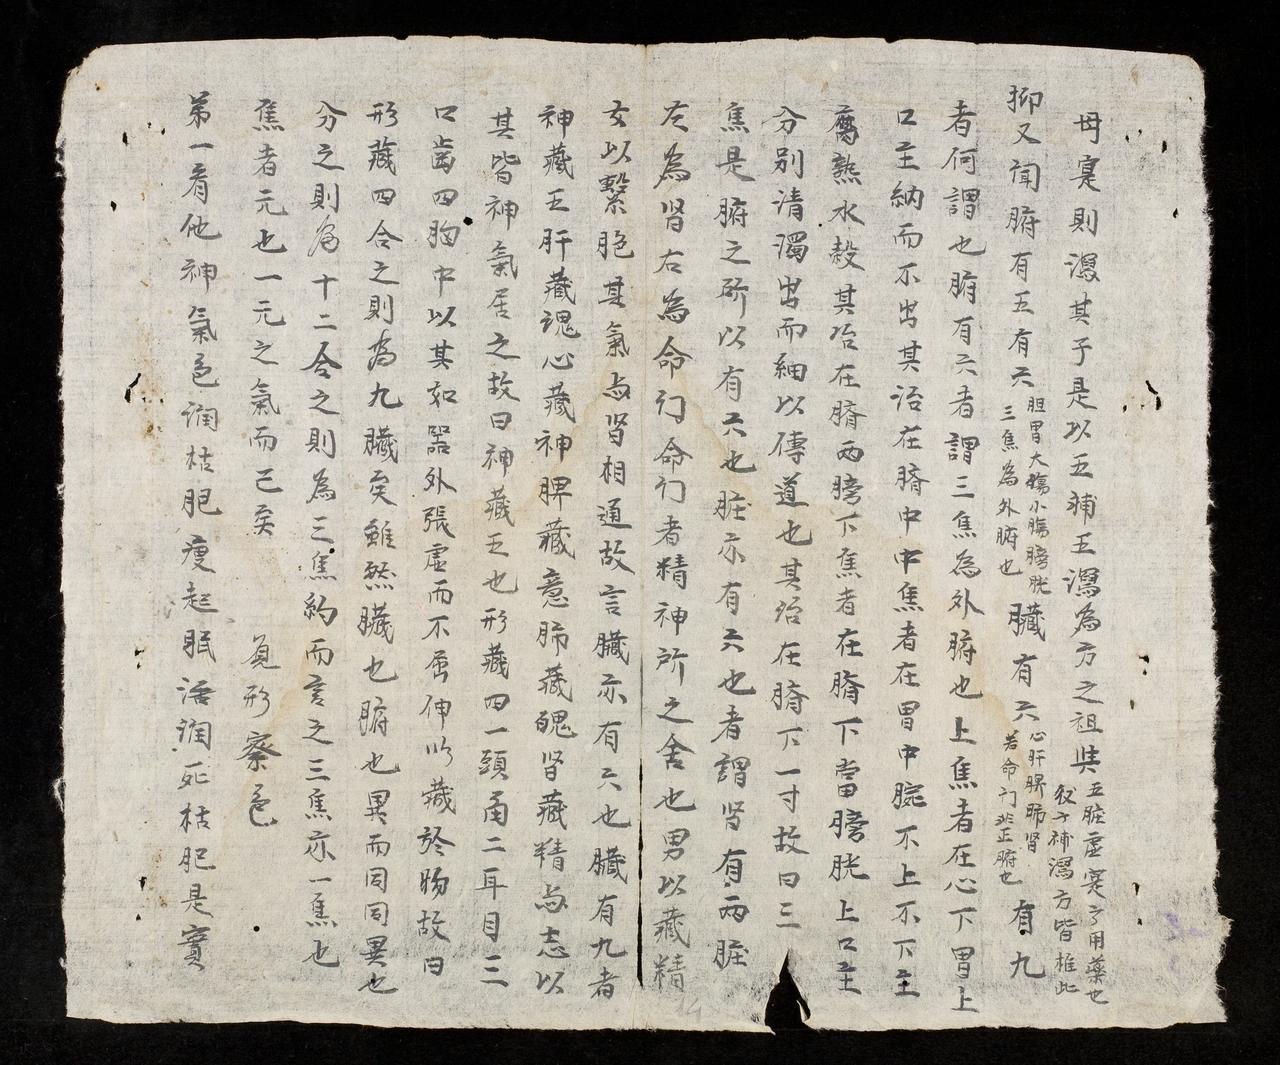 母寔則瀉其子是以五補五瀉為方之祖㠯五脏虛寔亏用藥也
仅亇補瀉方皆推此
抑又闻腑有五有六胆胃大膓小膓膀胱
三焦為外腑也
臟有六心肝脾肺肾
若命门非正腑也
有九
者何謂也腑有六者謂三焦為外腑也上焦者在心下胃上
口主納而不出其治在膻中中焦者在胃中脘不上不下主
腐熟水穀其治在臍两膀下焦者在臍下當膀胱上口主
分别清濁出而納以傳道也其治在臍下一寸故曰三
焦是腑之所以有六也脏亦有六也者謂肾有两脏
左為肾右為命门命门者精神所之舍也男以藏精
女以繫胞其氣与肾相通故言臟亦有六也臟有九者
神藏五肝藏魂心藏神脾藏意肺藏魄肾藏精与志以
其皆神氣居之故曰神藏五也形藏四一頭角二耳目三
口齒四胸中以其如器外張虛而不屈伸以藏於物故曰
形藏四合之則為九臟矣雖然臟也腑也異而同同異也
分之則為十二合之則為三焦約而言之三焦亦一焦也
焦者元也一元之氣而已矣
見形察色
第一看他神氣色润枯肥瘦起眠活润死枯肥是實